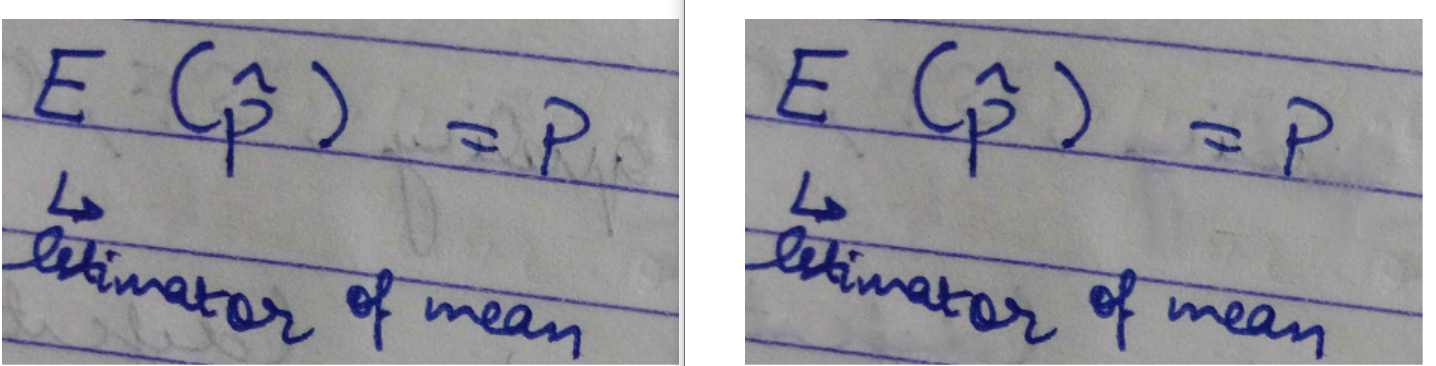 E (p̂) = P
↳
estimator of mean
E (p̂) = P
↳
estimator of mean